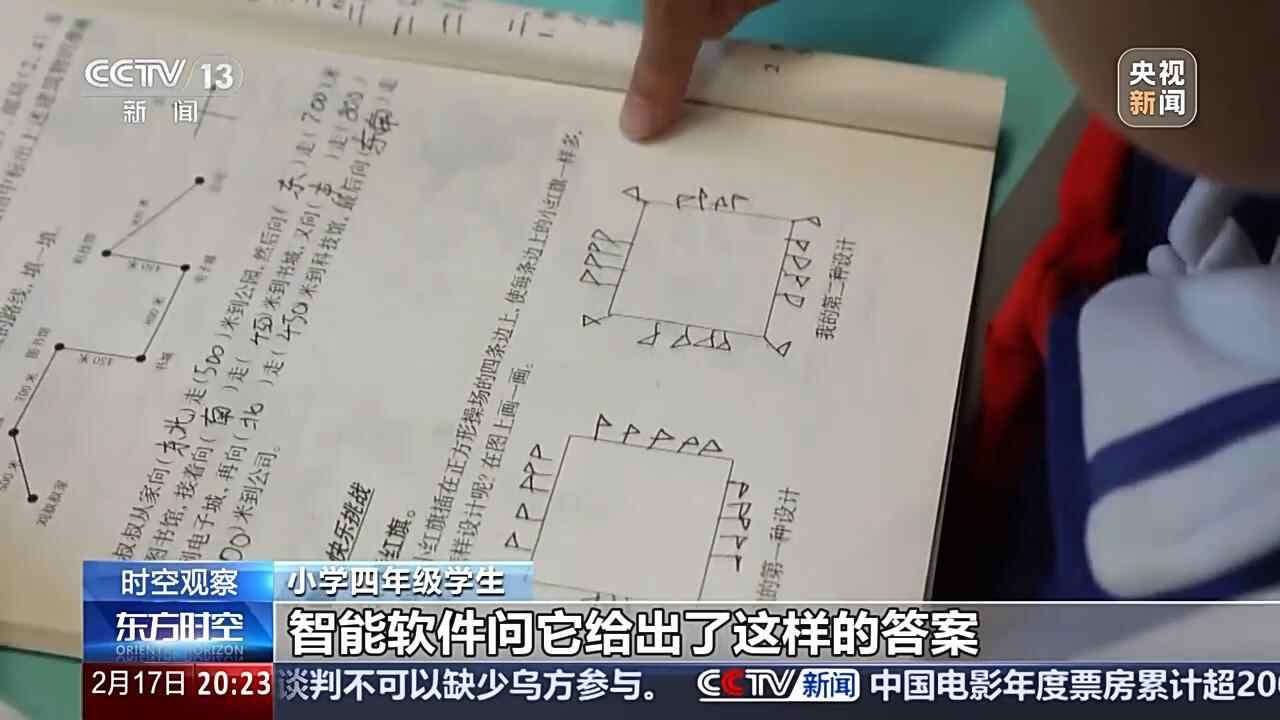 CCTV 13
新闻
央视
新闻
走(700)米
走(800)
最后向(东南)走
叔叔从家向(东北)走(500)米到公园,然后向(东
图书馆,接着向(南)走(450)米到书城,又向(
到电子城,再向(北)走(450)米到科技馆,
00)米到公司。
的路线,填一填。
700米
500米
450米
400米
图书馆
书城
电子城
科技馆
快乐挑战
红旗。
小红旗插在正方形操场的四条边上,使每条边上的小红旗一样多,
样设计呢?在图上画一画。
我的第二种设计
的第一种设计
时空观察
小学四年级学生
东方时空
ORIENTAL HORIZON
智能软件问它给出了这样的答案
2月17日 20:23
谈判不可以缺少乌方参与。 CCTV新闻 中国电影年度票房累计超200